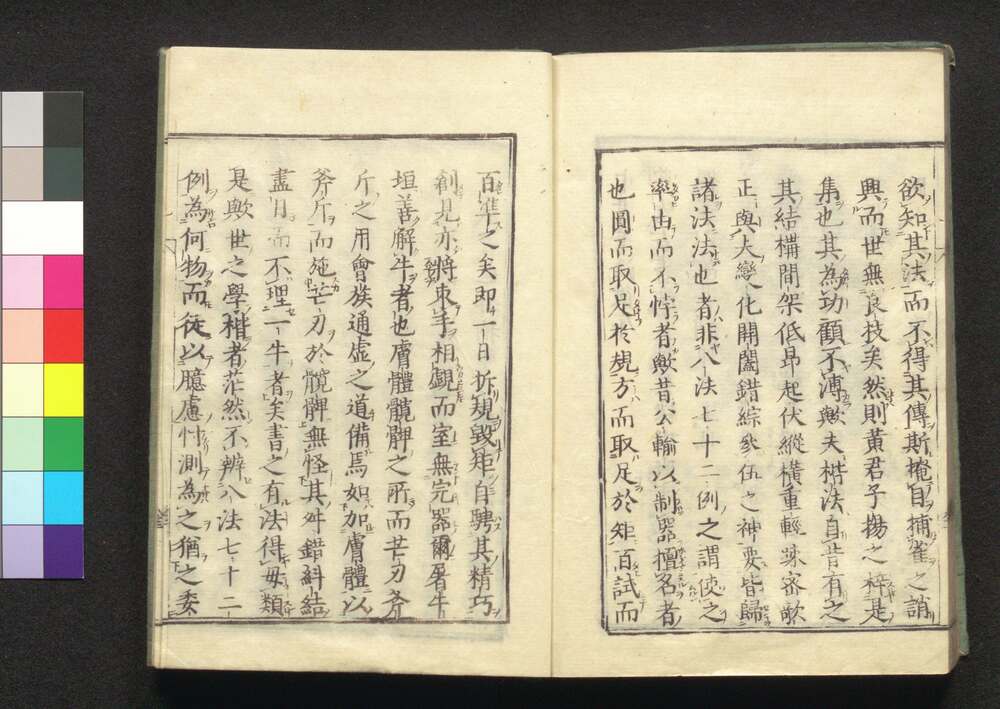 欲知其法而不得其傳斯掩目捕雀之誚
興而世無良技矣然則黄君子揚之梓是
集也其為功顧不溥歟夫楷法自昔有之
其結構間架低昂起伏縱横重輕踈密欹
正與大變化開闔錯綜參伍之神要皆歸
諸法法也者非八法七十二例之謂使之
率由而不悖者歟昔公輸以制器擅名者
也圓而取足於規方而取足於矩百試而
百準之矣即一日拆規毀矩自騁其精巧
創見亦將束手相覷而室無完器爾屠牛
垣善解牛者也膚體髖髀之所而芒刃斧
斤之用會族通虚之道備焉如加膚體以
斧斤而施芒刃於髖髀無怪其舛錯紏結
盡日而不理一牛者矣書之有法得毋類
是歟世之學楷者茫然不辨八法七十二
例為何物而徒以臆慮忖測為之猶之委